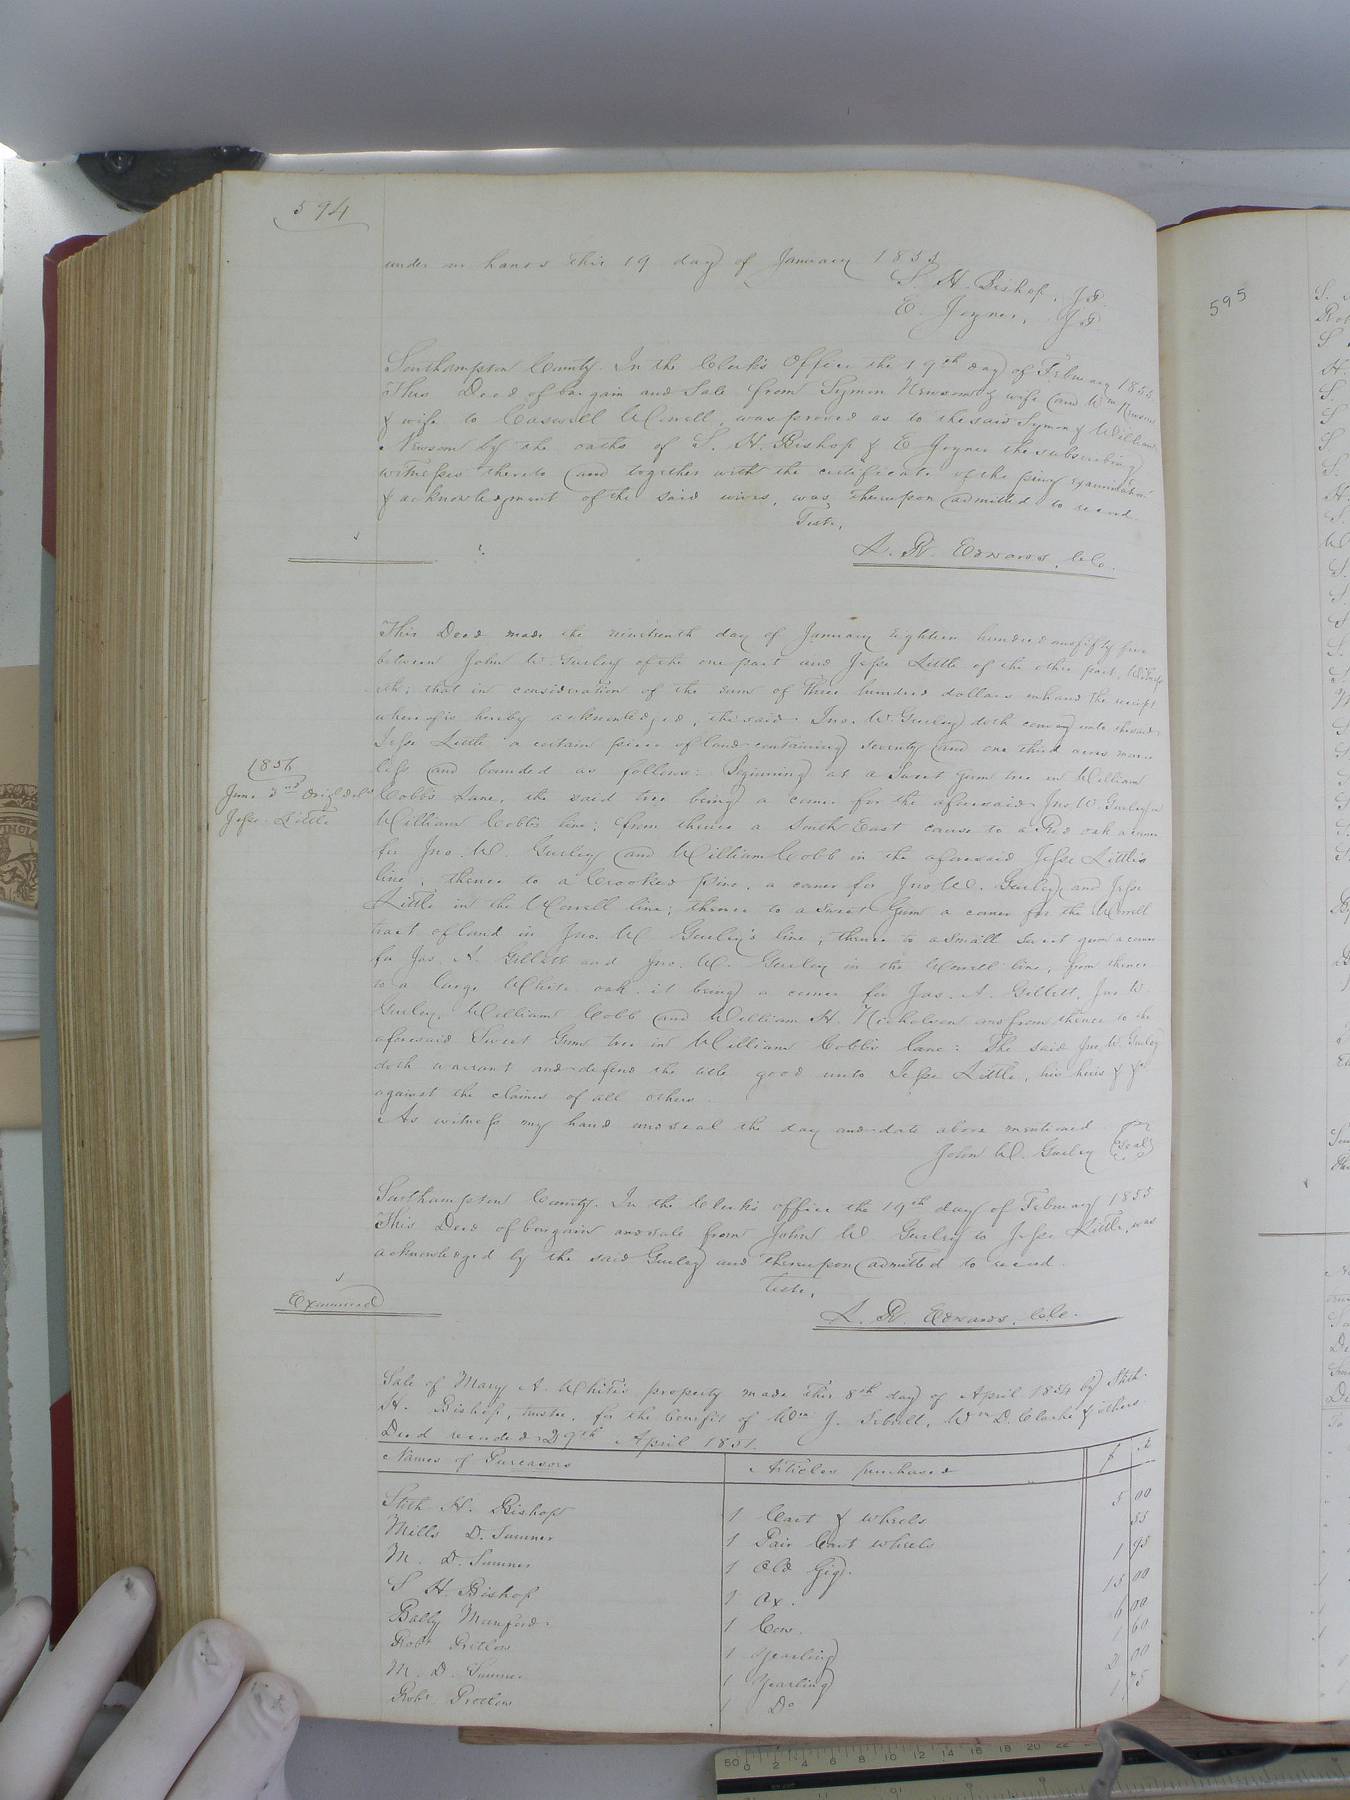 594
under our hands this 19 day of January 1855
S. H. Bishop, J.P.
E. Joyner, J.P.
Southampton County. In the Clerk's Office the 19th day of February 1855
This Deed of bargain and Sale from Symon Newsom & wife and Wm Newsom
& wife to Caswell Worrell, was proved as to the said Symon & William
Newsom by the oaths of S. H. Bishop & E Joyner the subscribing
witnesses thereto and together with the certificate of the privy examination
& acknowledgment of the said wives, was thereupon admitted to record.
Teste,
L. R. Edwards, C.C.
This Deed made the nineteenth day of January Eighteen hundred and fifty five
between John W. Gurley of the one part and Jesse Little of the other part, Witness
eth; that in consideration of the sum of Three hundred dollars in hand the receipt
whereof is hereby acknowledged, the said Jno. W. Gurley doth convey unto the said
Jesse Little a certain piece of land containing seventy and one third acres more
less and bounded as follows: Beginning at a Sweet gum tree in William
Cobb's Lane, the said tree being a corner for the aforesaid Jno W. Gurley in
William Cobb's line; from thence a South East course to a Red oak a corner
for Jno. W. Gurley and William Cobb in the aforesaid Jesse Little's
line; thence to a Crooked Pine, a corner for Jno W. Gurley and Jesse
Little in the Worrell line; thence to a Sweet Gum a corner for the Worrell
tract of land in Jno. W Gurley's line; thence to a small sweet gum a corner
for Jas. A. Gillett and Jno. W. Gurley in the Worrell line, from thence
to a large White oak it being a corner for Jas. A. Gillett, Jno W.
Gurley, William Cobb and William H. Nicholson and from thence to the
aforesaid Sweet Gum tree in William Cobb's lane: The said Jno. W. Gurley
doth warrant and defend the title good unto Jesse Little, his heirs & &c
against the claims of all others.
As witness my hand and seal the day and date above mentioned
John W. Gurley (Seal)
1856
June 2nd Orig: Deld
Jesse Little
Southampton County. In the Clerk's office the 19th day of February 1855
This Deed of bargain and sale from John W Gurley to Jesse Little, was
acknowledged by the said Gurley and thereupon admitted to record.
Teste,
L. R. Edwards, C.C.
Examined
Sale of Mary A. White's property made this 8th day of April 1854 by Stith
H. Bishop, trustee, for the benefit of Wm J. Sebrell, Wm D. Clarke & others
Deed recorded 29th April 1851.
Names of Purcasors Articles purchased $ c
Stith H. Bishop 1 Cart & wheels 5 00
Mills D. Sumner 1 Pair Cart wheels 55
M. D. Sumner 1 Old Gig. 1 95
S H. Bishop 1 Ox. 15 00
Bally Munford. 1 Cow. 6 00
Robt Pretlow 1 Yearling 1 60
M. D. Sumner 1 Yearling 2 00
Robt Pretlow 1 Do 1, 75
595
50 0 2 4 6 8 10 12 14 16 18 20 22